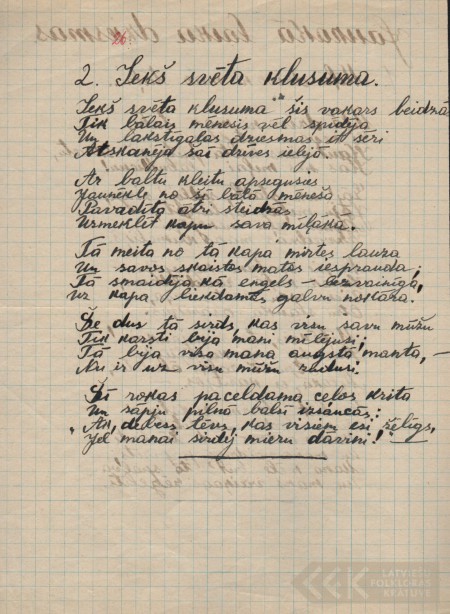 2. Iekš svēta klusuma.
Iekš svēta klusuma šis vakars beidzās
Tik bālais mēnesis vēl spīdēja
Un lakstīgalas dziesmas it sēri
Atskanēja šai dzīves ielejā.
Ar baltu kleitu apsegusies
Jaunekli, no šī bālā mēneša
Pavadīta ātri steidzās
Uzmeklēt kapu sava mīļākā.
Tā meita no tā kapa mirtes lauza
Un savos skaistos matos iesprauda;
Tā smaidīja kā engels – bezvainīga,
uz kapa liekdamās galvu nokāra.
Še dus tā sirds, kas visu savu mūžu
Tik karsti bija mani mīlējusi;
Tā bija visa mana augstā manta, –
Nu ir uz visu mūžu zudusi.
Šī rokas paceldama ceļos krita
Un sāpju pilnā balsī izsaucās:
„Ak, debess tēvs, kas visiem esi želīgs,
Jel manai sirdij mieru dāvini!"
LATVIEŠU
FOLKLORAS
KRĀTUVE